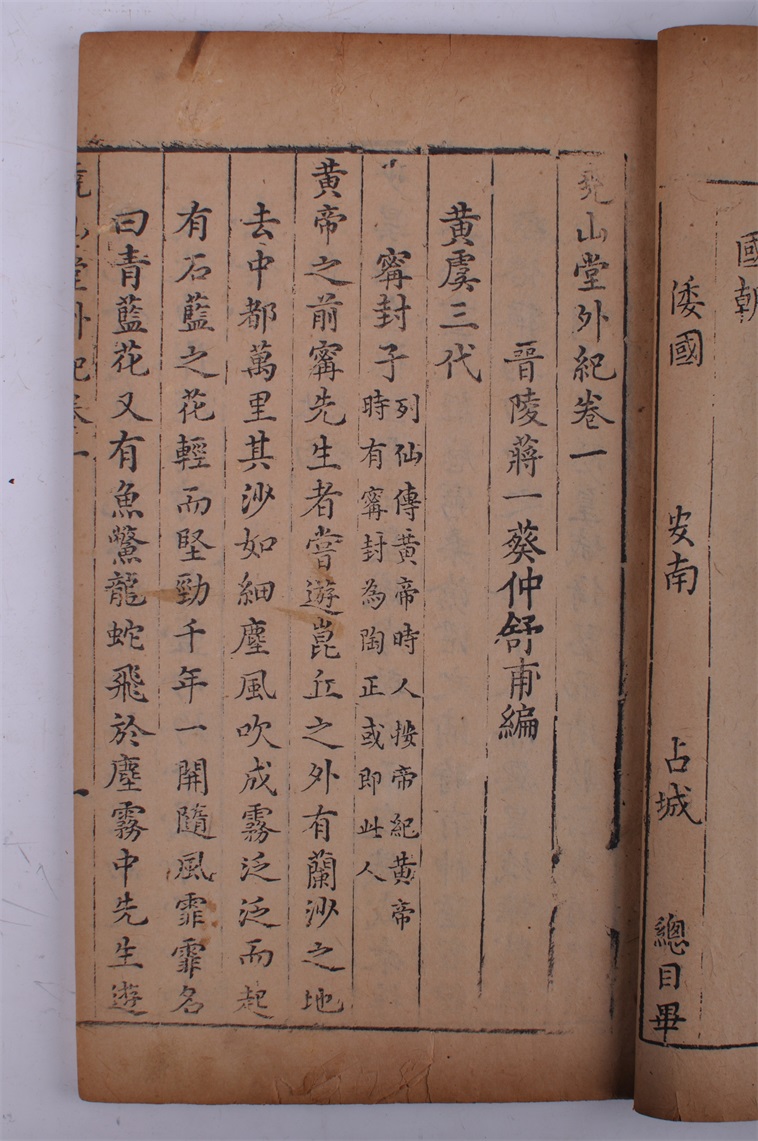 國朝
倭國 安南 占城 總目畢
堯山堂外紀卷一
晉陵蔣一葵仲舒甫編
黃虞三代
甯封子 列仙傳黃帝時人按帝紀黃帝
時有甯封為陶正或即此人
黃帝之前甯先生者嘗遊崑丘之外有蘭沙之地
去中都萬里其沙如細塵風吹成霧泛泛而起
有石藍之花輕而堅勁千年一開隨風霏霏名
曰青藍花又有魚鱉龍蛇飛於塵霧中先生遊
堯山堂外紀卷一 一